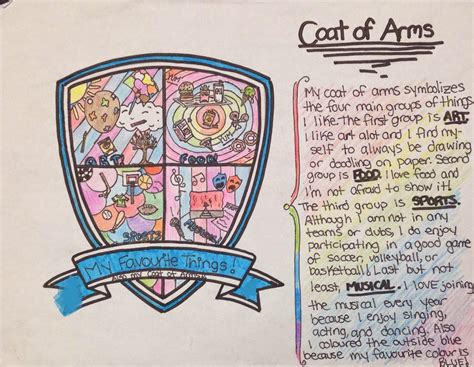 Coat of Arms
My coat of arms symbolizes
the four main groups of things
I like. The first group is ART.
I like art alot and I find my-
self to always be drawing
or doodling on paper. Second
group is FOOD. I love food and
I'm not afraid to show it!
The third group is SPORTS.
Although I am not in any
teams or clubs, I do enjoy
participating in a good game
of soccer, volleyball, or
basketball. Last but not
least, MUSICAL. I love joining
the musical every year
because I enjoy singing,
acting, and dancing. Also
I coloured the outside blue
because my favourite colour is
BLUE!
YUM
YUM
ART
FOOD
SPORTS
My Favourite Things!
Also my Coat of Arms!!